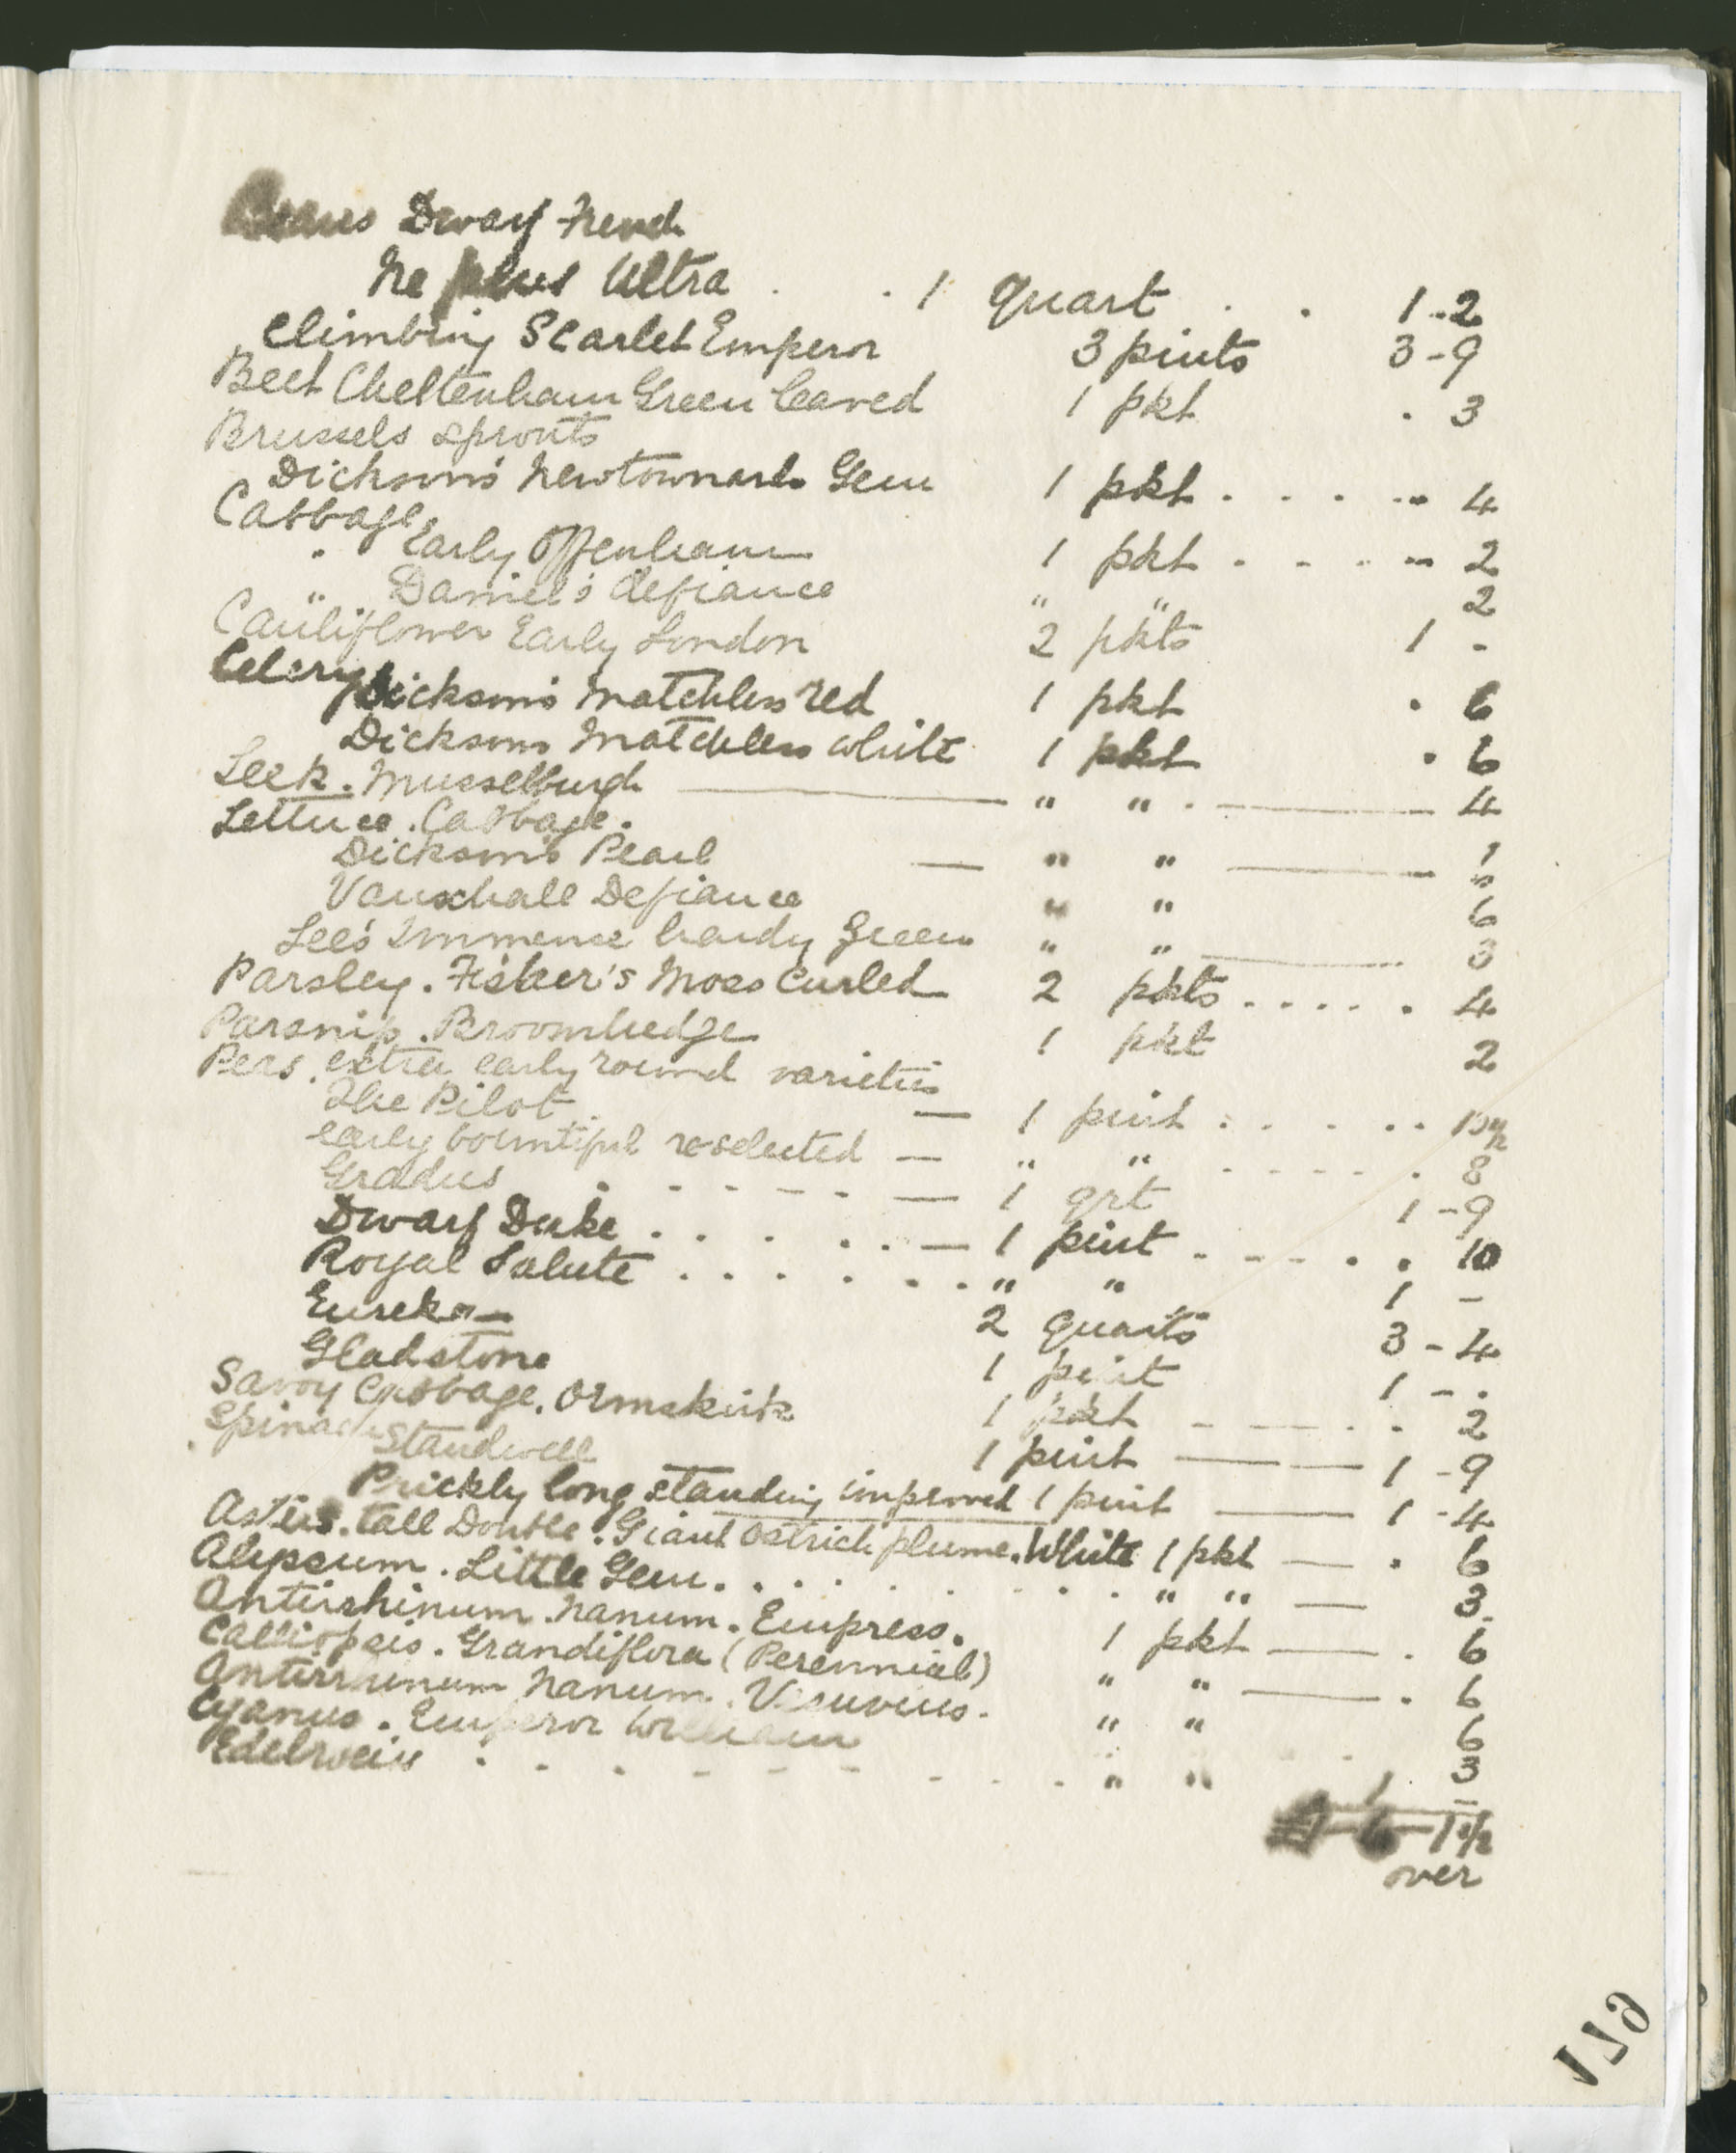 Beans Dwarf French
Ne plus Ultra . . 1 quart . . 1-2
Climbing Scarlet Emperor 3 pints 3-9
Beet Cheltenham Green leaved 1 pkt . 3
Brussels sprouts
Dickson's Newtownards Gem 1 pkt . . . .. 4
Cabbage,
. Early Offenham 1 pkt . . . .. 2
" Daniel's defiance " " 2
Cauliflower Early London 2 pkts 1 -
Celery Dickson's matchless red 1 pkt . 6
Dicksons matchless white 1 pkt . 6
Leek. Musselburgh — " " . — 4
Lettuce. Cabbage.
Dickson's Pearl — " " — 1
Vauxhall Defiance " " 6
Lee's Immense hardy green " " — 3
Parsley. Fisher's Moss Curled 2 pkts . . . . . 4
Parsnip. Broomhedge 1 pkt 2
Peas. extra early round varieties
The Pilot — 1 pint . . . . .. 10½
early bountiful re-selected — " " . - - - . 8
Gradus . - - - - — 1 qrt 1-9
Dwarf Duke . . . . . — 1 pint . - - . . 10
Royal Salute . . . . . . " " 1 -
Eureka — 2 quarts 3-4
Gladstone 1 pint 1 - .
Savoy Cabbage. Ormskirk 1 pkt - - - . 2
Spinach Standwell 1 pint — 1-9
Prickly long standing improved 1 pint — 1-4
Asters. tall Double. Giant Ostrich plume. White 1 pkt — . 6
Alyssum. Little Gem. . . . . . . . . " " — 3
Antirrhinum. Nanum. Empress. 1 pkt — . 6
Calliopsis. Grandiflora (Perennial) " " — . 6
Antirrhinum Nanum. Vesuvius. " " 6
Cyanus. Emperor William " " 3
Edelweiss . . . - - - - . . " " 1 -
£1 6 1½
over
179